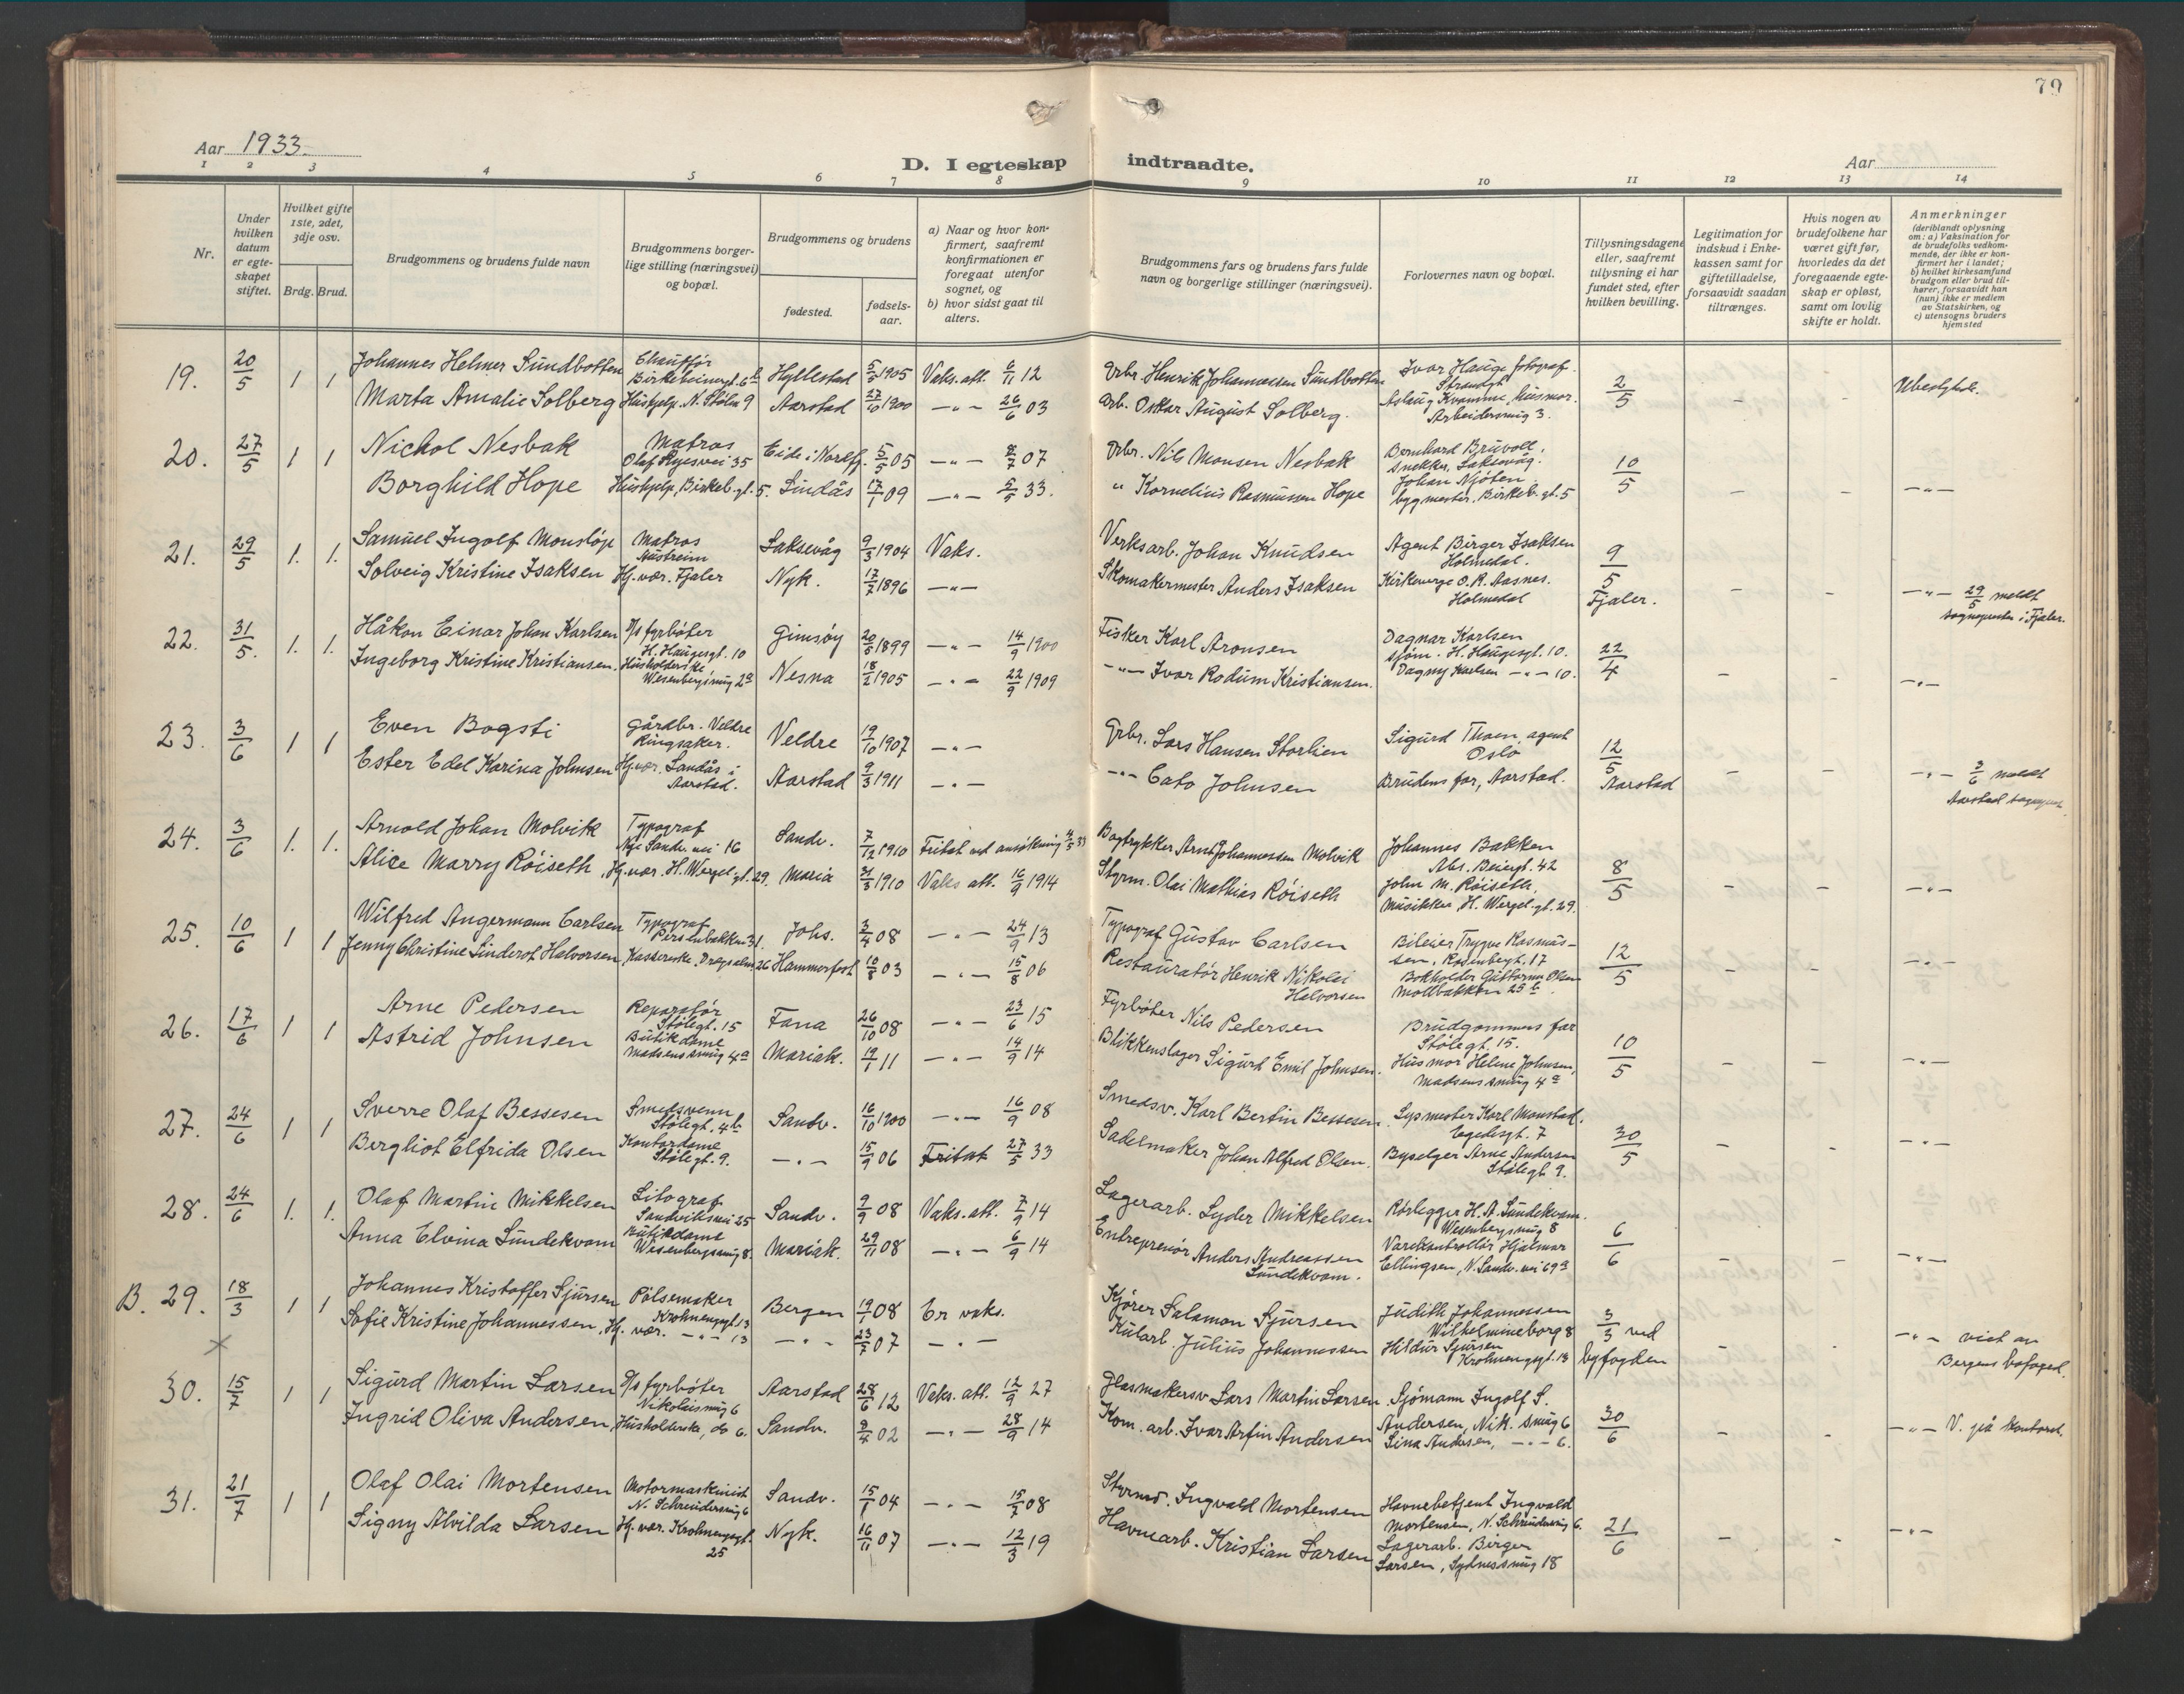 79
Aar 1933.
D. I egteskap indtraadte.
Aar
1 2 3 4 5 6 7 8 9 10 11 12 13 14
Nr.
Under hvilken datum er egte-skapet stiftet.
Hvilket gifte 1ste, 2det, 3dje osv.
Brdg. Brud.
Brudgommens og brudens fulde navn
Brudgommens borger-lige stilling (næringsvei) og bopæl.
Brudgommens og brudens
fødested.
fødsels-aar.
a) Naar og hvor kon-firmert, saafremt konfirmationen er foregaat utenfor sognet, og
b) hvor sidst gaat til alters.
Brudgommens fars og brudens fars fulde navn og borgerlige stillinger (næringsvei).
Forlovernes navn og bopæl.
Tillysningsdagene eller, saafremt tillysning ei har fundet sted, efter hvilken bevilling.
Legitimation for indskud i Enke-kassen samt for giftetilladelse, forsaavidt saadan tiltrænges.
Hvis nogen av brudefolkene har været gift før, hvorledes da det foregaaende egte-skap er opløst, samt om lovlig skifte er holdt.
Anmerkninger (deriblandt oplysning om: a) Vaksination for de brudefolks vedkom-mende, der ikke er kon-firmert her i landet; b) hvilket kirkesamfund brudgom eller brud til-hører, forsaavidt han (hun) ikke er medlem av Statskirken, og c) utensogns bruders hjemsted
19. 20/5 1 1 Johannes Helmer Sundbotten Chauffør Birkebeinergt. 6b Hyllestad 5/5 1905 Vaks. att. 6/11 12 Grbr. Henrik Johannessen Sundbotten Ivar Hauge fotograf. Strandgt 2/5 - - Ubeslegtede.
Marta Amalie Solberg Hushjelp. N. Stølen 9 Aarstad 27/10 1900 -"- 26/6 03 Arb. Oskar August Solberg. Aslaug Kvamme, husmor. Arbeidersmug 3.
20. 27/5 1 1 Nickol Nesbak Matros Olaf Ryesvei 35 Eide i Nordfj. 5/5 05 -"- 2/7 07 Grbr. Nils Monsen Nesbak Bernhard Bruvoll, snekker, Laksevåg. 10/5 - - -"-
Borghild Hope Hushjelp, Birkeb. gt. 5. Lindås 17/1 09 -"- 5/5 33. " Kornelius Rasmussen Hope Johan Njøten bygmester, Birkeb. gt. 5
21. 29/5 1. 1. Samuel Ingolf Monsløp Matros Austreim Laksevåg 9/3 1904 Vaks. Verksarb. Johan Knudsen Agent Birger Isaksen Holmedal. 9/5 Fjaler. - - -"- 29/5 meldt sogneprесten i Fjaler.
Solveig Kristine Isaksen Hj. vær. Fjaler Nyk. 17/7 1896 -"- Skomakermester Anders Isaksen Kirkeverge O. R. Aasnes. Holmedal
22. 31/5. 1. 1. Håkon Einar Johan Karlsen D/s fyrbøter H. Haugesgt. 10 Gimsøy 20/5 1899 -"- 14/9 1900 Fisker Karl Aronsen Dagnar Karlsen sjøm. H. Haugesgt. 10. 22/4 - - -"-
Ingeborg Kristine Kristiansen. Husholderske Wesenbergsmug 2a Nesna 18/2 1905 -"- 22/9 1909 -"- Ivar Rodum Kristiansen. Dagny Karlsen -"- 10.
23. 3/6 1 1 Even Bogsti Gårdbr. Veldre Ringsaker. Veldre 19/10 1907 -"- Grbr. Lars Hansen Storlien Sigurd Thoen, agent Oslo 12/5 Aarstad - - -"- 3/6 meldt Aarstad
Ester Edel Karina Johnsen Hj. vær. Landås i Aarstad. Aarstad 9/3 1911 -"- -"- Cato Johnsen Brudens far, Aarstad.
24. 3/6 1. 1. Arnold Johan Molvik Typograf Nye Sandv. vei 16 Sandv. 7/12 1910 Fritat ved ansøkning 4/5 33 Bogtrykker Arnt Johannessen Molvik Johannes Bakken Abs. Beiergt. 42 8/5 - - -"-
Alice Marry Røiseth, Hj. vær. H. Wergel. gt. 29. Maria 31/3 1910 Vaks att. 16/9 1914 Styrm. Olai Mathias Røiseth John M. Røiseth, musikker, H. Wergel. gt. 29.
25. 10/6 1 1 Wilfred Angermann Carlsen Typograf Persenbakken 31. Johs. 3/4 08 -"- 24/9 13 Typograf Gustav Carlsen Bileier Trygve Rasmus-sen, Rosenbergt. 17 12/5 - - -"-
Jenny Christine Linderot Halvorsen, Kassererske. Dregsalm. 26 Hammerfest 10/8 03 -"- 15/8 06 Restauratør Henrik Nikolai Halvorsen Bokholder Guttorm Olsen Mollbakken 25b.
26. 17/6 1 1 Arne Pedersen Reparatør Stølegt. 15 Fana 26/10 08 -"- 23/6 15 Fyrbøter Nils Pedersen Brudgommens far Stølegt. 15. 10/5 - - -"-
Astrid Johnsen Butikdame Madsens smug 4a Mariak. 19/1 11 -"- 14/9 14 Blikkenslager Sigurd Emil Johnsen. Husmor Helene Johnsen, Madsens smug 4a
27. 24/6 1 1 Sverre Olaf Bessesen Smedsvenn Stølegt. 4b Sandv. 16/10 1900 -"- 16/9 08 Smedsv. Karl Bertin Bessesen. Lysmester Karl Monstad. Egedesgt. 7 30/5 - - -"-
Bergliot Elfrida Olsen Kontordame Stølegt. 9. -"- 15/9 06 Fritat 27/5 33 Sadelmaker Johan Alfred Olsen. Byselger Arne Andersen Stølegt 9.
28. 24/6 1. 1. Olaf Martin Mikkelsen Litograf Sandviksvei 25 Sandv. 9/9 08 Vaks. att. 7/9 14 Lagerarb. Lyder Mikkelsen Rørlegger H. A. Sundekvam. Wesenbergsmug 8 6/6 - - -"-
Anna Elvina Sundekvam Butikdame Wesenbergsmug 8. Mariak. 29/11 08 -"- 6/9 14 Entreprenør Anders Andreassen Sundekvam. Varekontrollør Hjalmar Ellingsen, N. Sandv. vei 69a
B. 29. 18/3 1 1 Johannes Kristoffer Sjursen Pølsemaker Krohnengsgt. 13 Bergen 19/1 08 Er vaks. Kjører Salamon Sjursen Judith Johannessen Wilhelmineborg 8 3/3 ved byfogden - - -"- viet av Bergens byfoged.
× Sofie Kristine Johannessen, Hj. vær. -"- 13 -"- 23/7 07 -"- Kularb. Julius Johannessen Hildur Sjursen Krohnengsgt. 13
30. 15/7 1 1 Sigurd Martin Larsen D/s fyrbøter Nikolaismug 6 Aarstad 28/6 12 Vaks. att. 12/9 27 Glasmakersv Lars Martin Larsen. Sjømann Ingolf S. Andersen, Nik. smug 6 30/6 - - -"- V. på kontoret.
Ingrid Oliva Andersen, Husholderske, do 6. Sandv. 8/4 02 -"- 28/9 14 Kom. arb. Ivar Arfin Andersen Lina Andersen, -"- 6.
31. 21/7 1 1 Olaf Olai Mortensen Motormaskinist N. Schreudersmug 6 Sandv. 15/1 04 -"- 15/7 08 Styrmd. Ingvald Mortensen Havnebetjent Ingvald Mortensen, N. Schreudersmug 6. 21/6 - - -"-
Signy Alvilda Larsen Hj. vær. Krohnengsgt. 25 Nyk. 16/11 07 -"- 12/3 19 Havnearb. Kristian Larsen Lagerarb. Birger Larsen, Sydnessmug 18